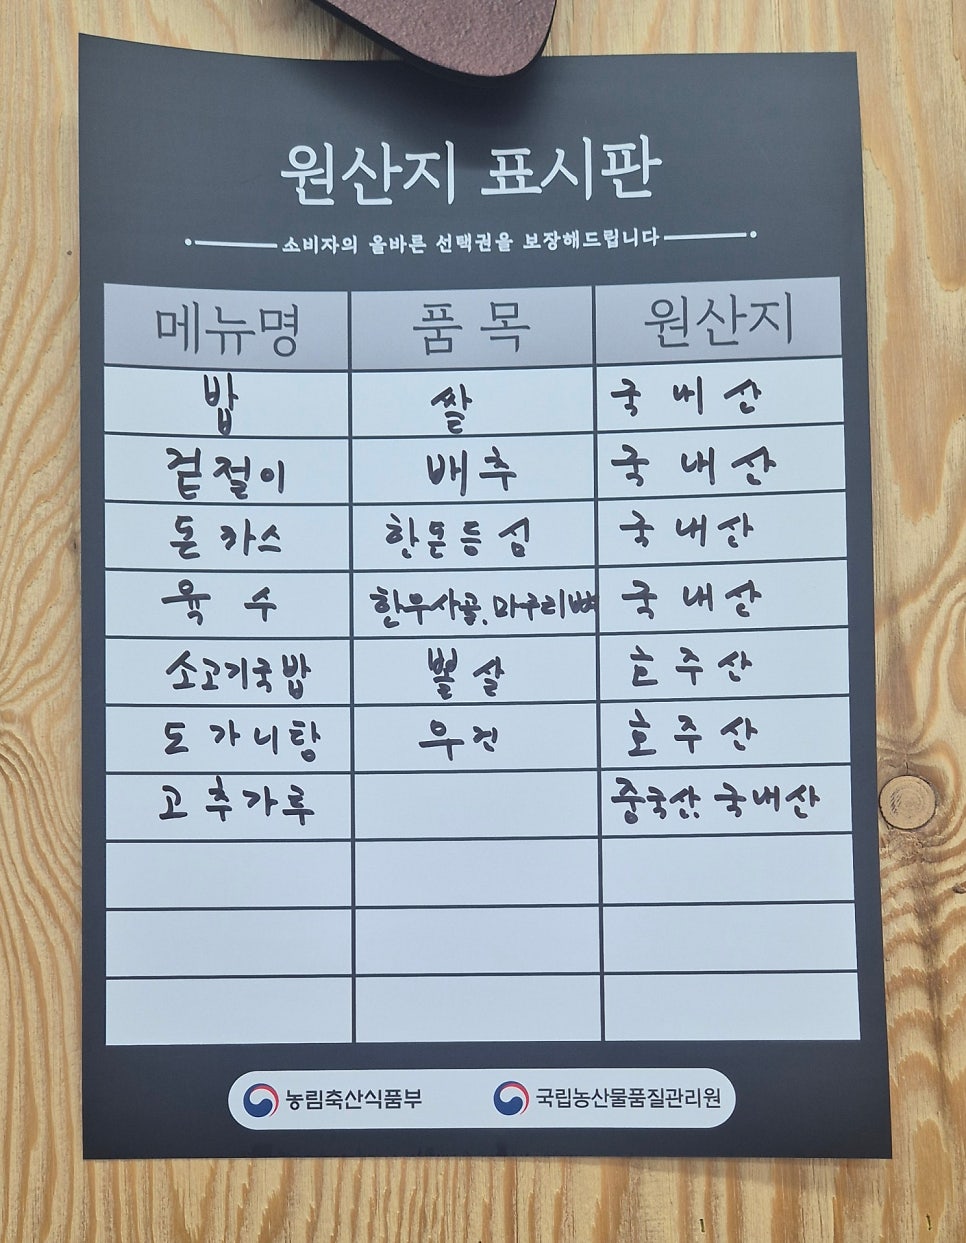 원산지 표시판
소비자의 올바른 선택권을 보장해드립니다
메뉴명 품목 원산지
밥 쌀 국내산
겉절이 배추 국내산
돈카스 한돈등심 국내산
육수 한우사골, 마구리뼈 국내산
소고기국밥 뽈살 호주산
도가니탕 우건 호주산
고추가루 중국산, 국내산
농림축산식품부 국립농산물품질관리원